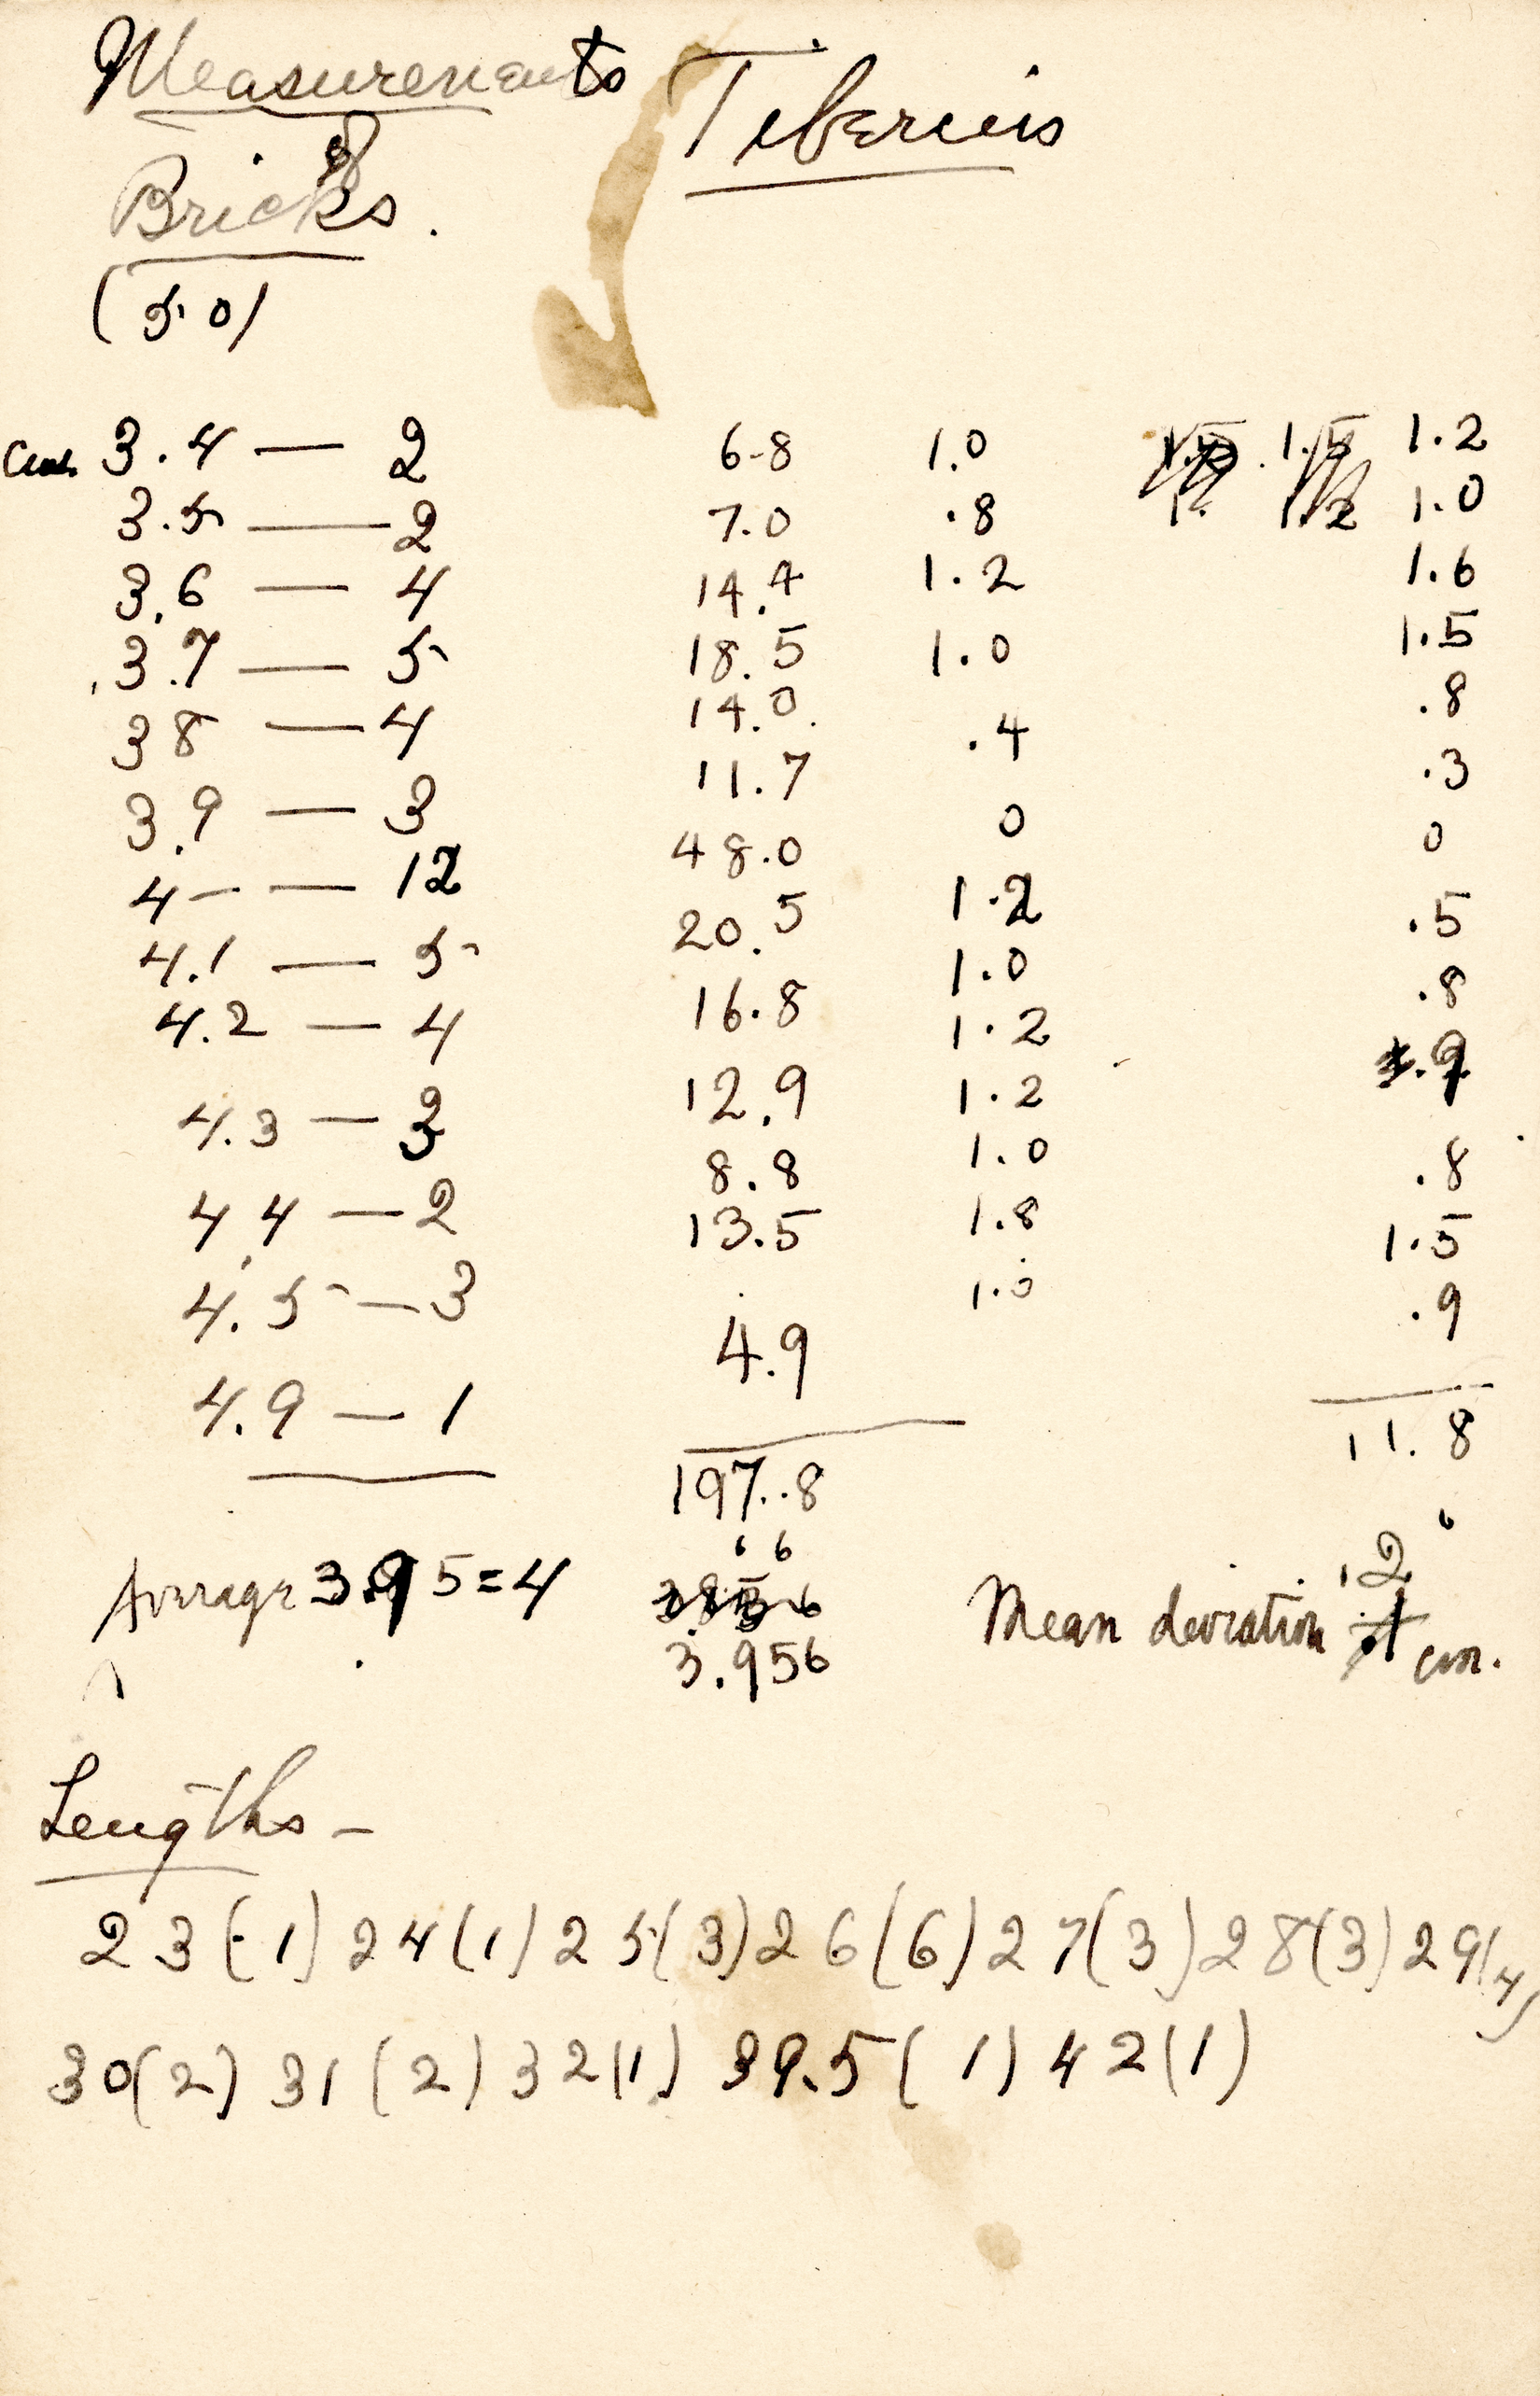 Measurements Tiberius
of
Bricks.
(50)
Cent. 3.4 — 2 6.8 1.0 1.2
3.5 — 2 7.0 .8 1.0
3.6 — 4 14.4 1.2 1.6
3.7 — 5 18.5 1.0 1.5
38 — 4 14.0 .4 .8
3.9 — 3 11.7 0 .3
4 — 12 48.0 1.2 0
4.1 — 5 20.5 1.0 .5
4.2 — 4 16.8 1.2 .8
4.3 — 3 12.9 1.2 .9
4.4 — 2 8.8 1.0 .8
4.5 — 3 13.5 1.8 1.5
4.9 — 1 4.9 1.0 .9
197.8 11.8
Average 3.95 = 4 3.956 Mean deviation .2 cm.
Lengths –
23 (1) 24 (1) 25 (3) 26 (6) 27 (3) 28 (3) 29 (4)
30 (2) 31 (2) 32 (1) 39.5 (1) 42 (1)